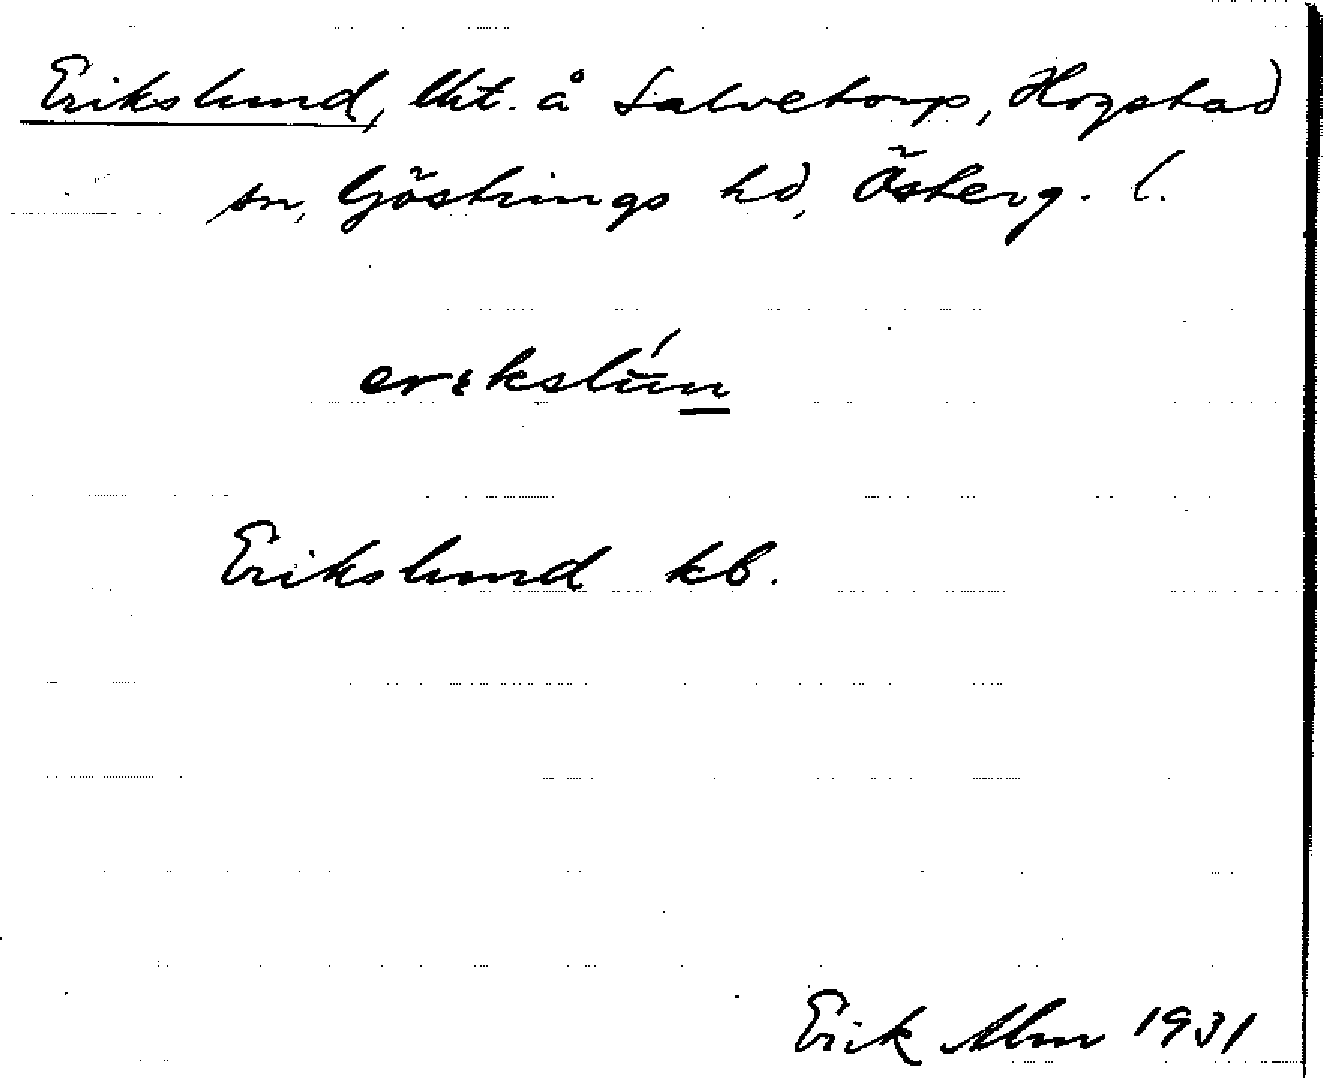 Erikslund, lht. å Salvetorp, Hogstad
sn, Göstrings hd, Österg. l.
erikslún
Erikslund kb.
Erik Alm 1931